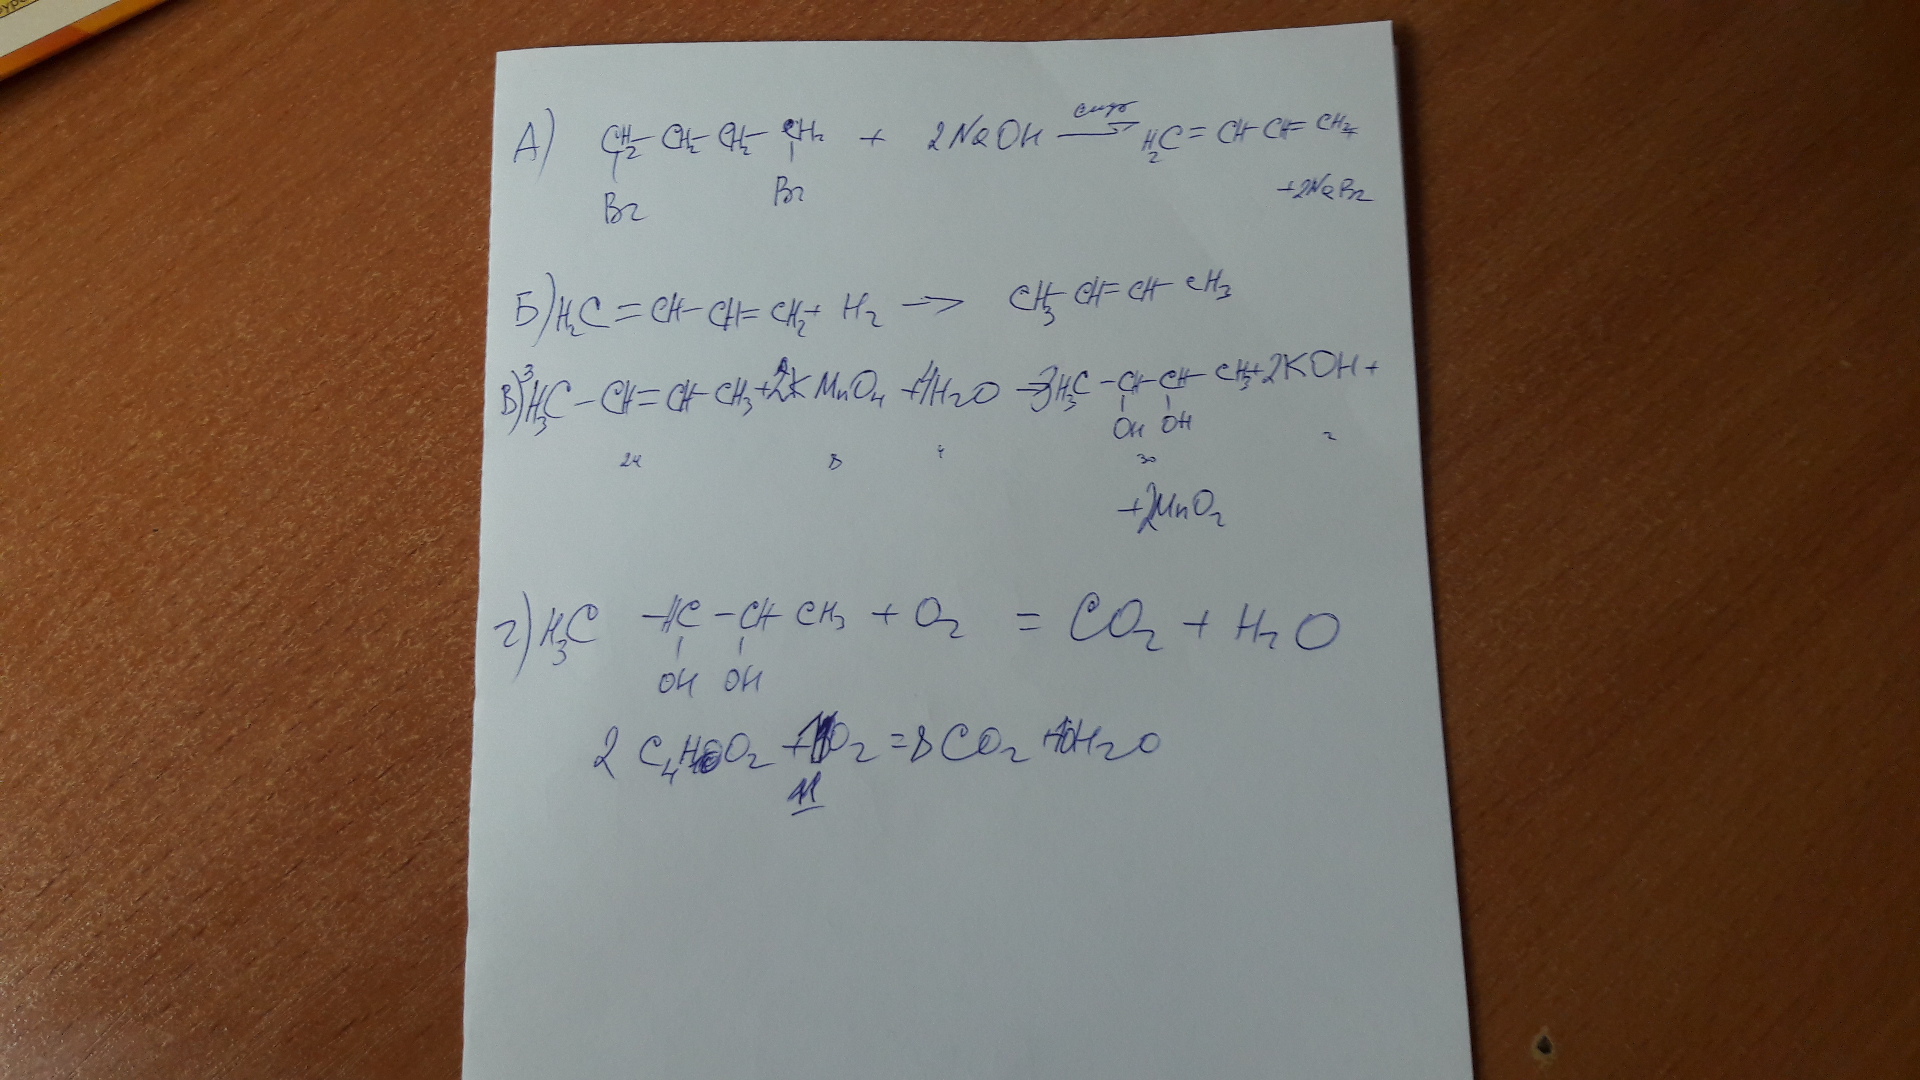 А) CH2- CH2- CH2- CH2 + 2NaOH спирт → H2C= CH- CH= CH2+
Br Br +2NaBr
Б) H2C = CH- CH= CH2+ H2 → CH3- CH= CH- CH3
В) 3H3C - CH= CH- CH3+2KMnO4 +4H2O → 3H3C - CH- CH- CH3+2KOH+
OH OH
24 8 4 30 2
+2MnO2
г) H3C -HC - CH CH3 + O2 = CO2 + H2O
OH OH
2 C4H10O2 + 11O2 =8CO2 +10H2O
11